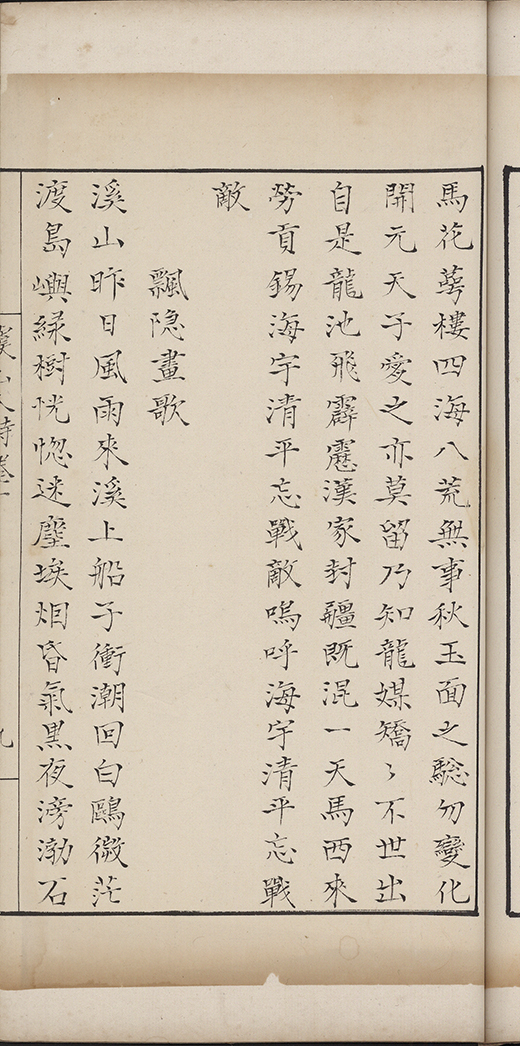 馬花萼樓四海八荒無事秋玉面之驄勿變化
開元天子愛之亦莫留乃知龍媒矯〻不世出
自是龍池飛霹靂漢家封疆既混一天馬西來
勞貢錫海宇清平忘戰敵嗚呼海宇清平忘戰
敵
飄隐畫歌
溪山昨日風雨來溪上船子衝潮回白鷗微茫
渡島嶼緑樹恍惚迷塵埃烟昏氣黒夜滂渤石